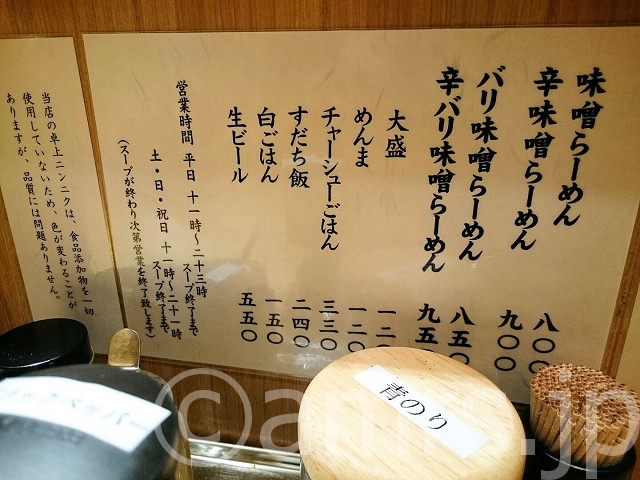 味噌らーめん 八〇〇
辛味噌らーめん 九〇〇
バリ味噌らーめん 八五〇
辛バリ味噌らーめん 九五
大盛 一二
めんま 一二〇
チャーシューごはん 三三〇
すだち飯 二四〇
白ごはん 一五〇
生ビール 五五〇
営業時間 平日 十一時〜二十三時
スープ終了まで
土・日・祝日 十一時〜二十一時
スープ終了まで
(スープが終わり次第営業を終了致します)
当店の卓上ニンニクは、食品添加物を一切
使用していないため、色が変わることが
ありますが、品質には問題ありません。
ペッパー
青のり